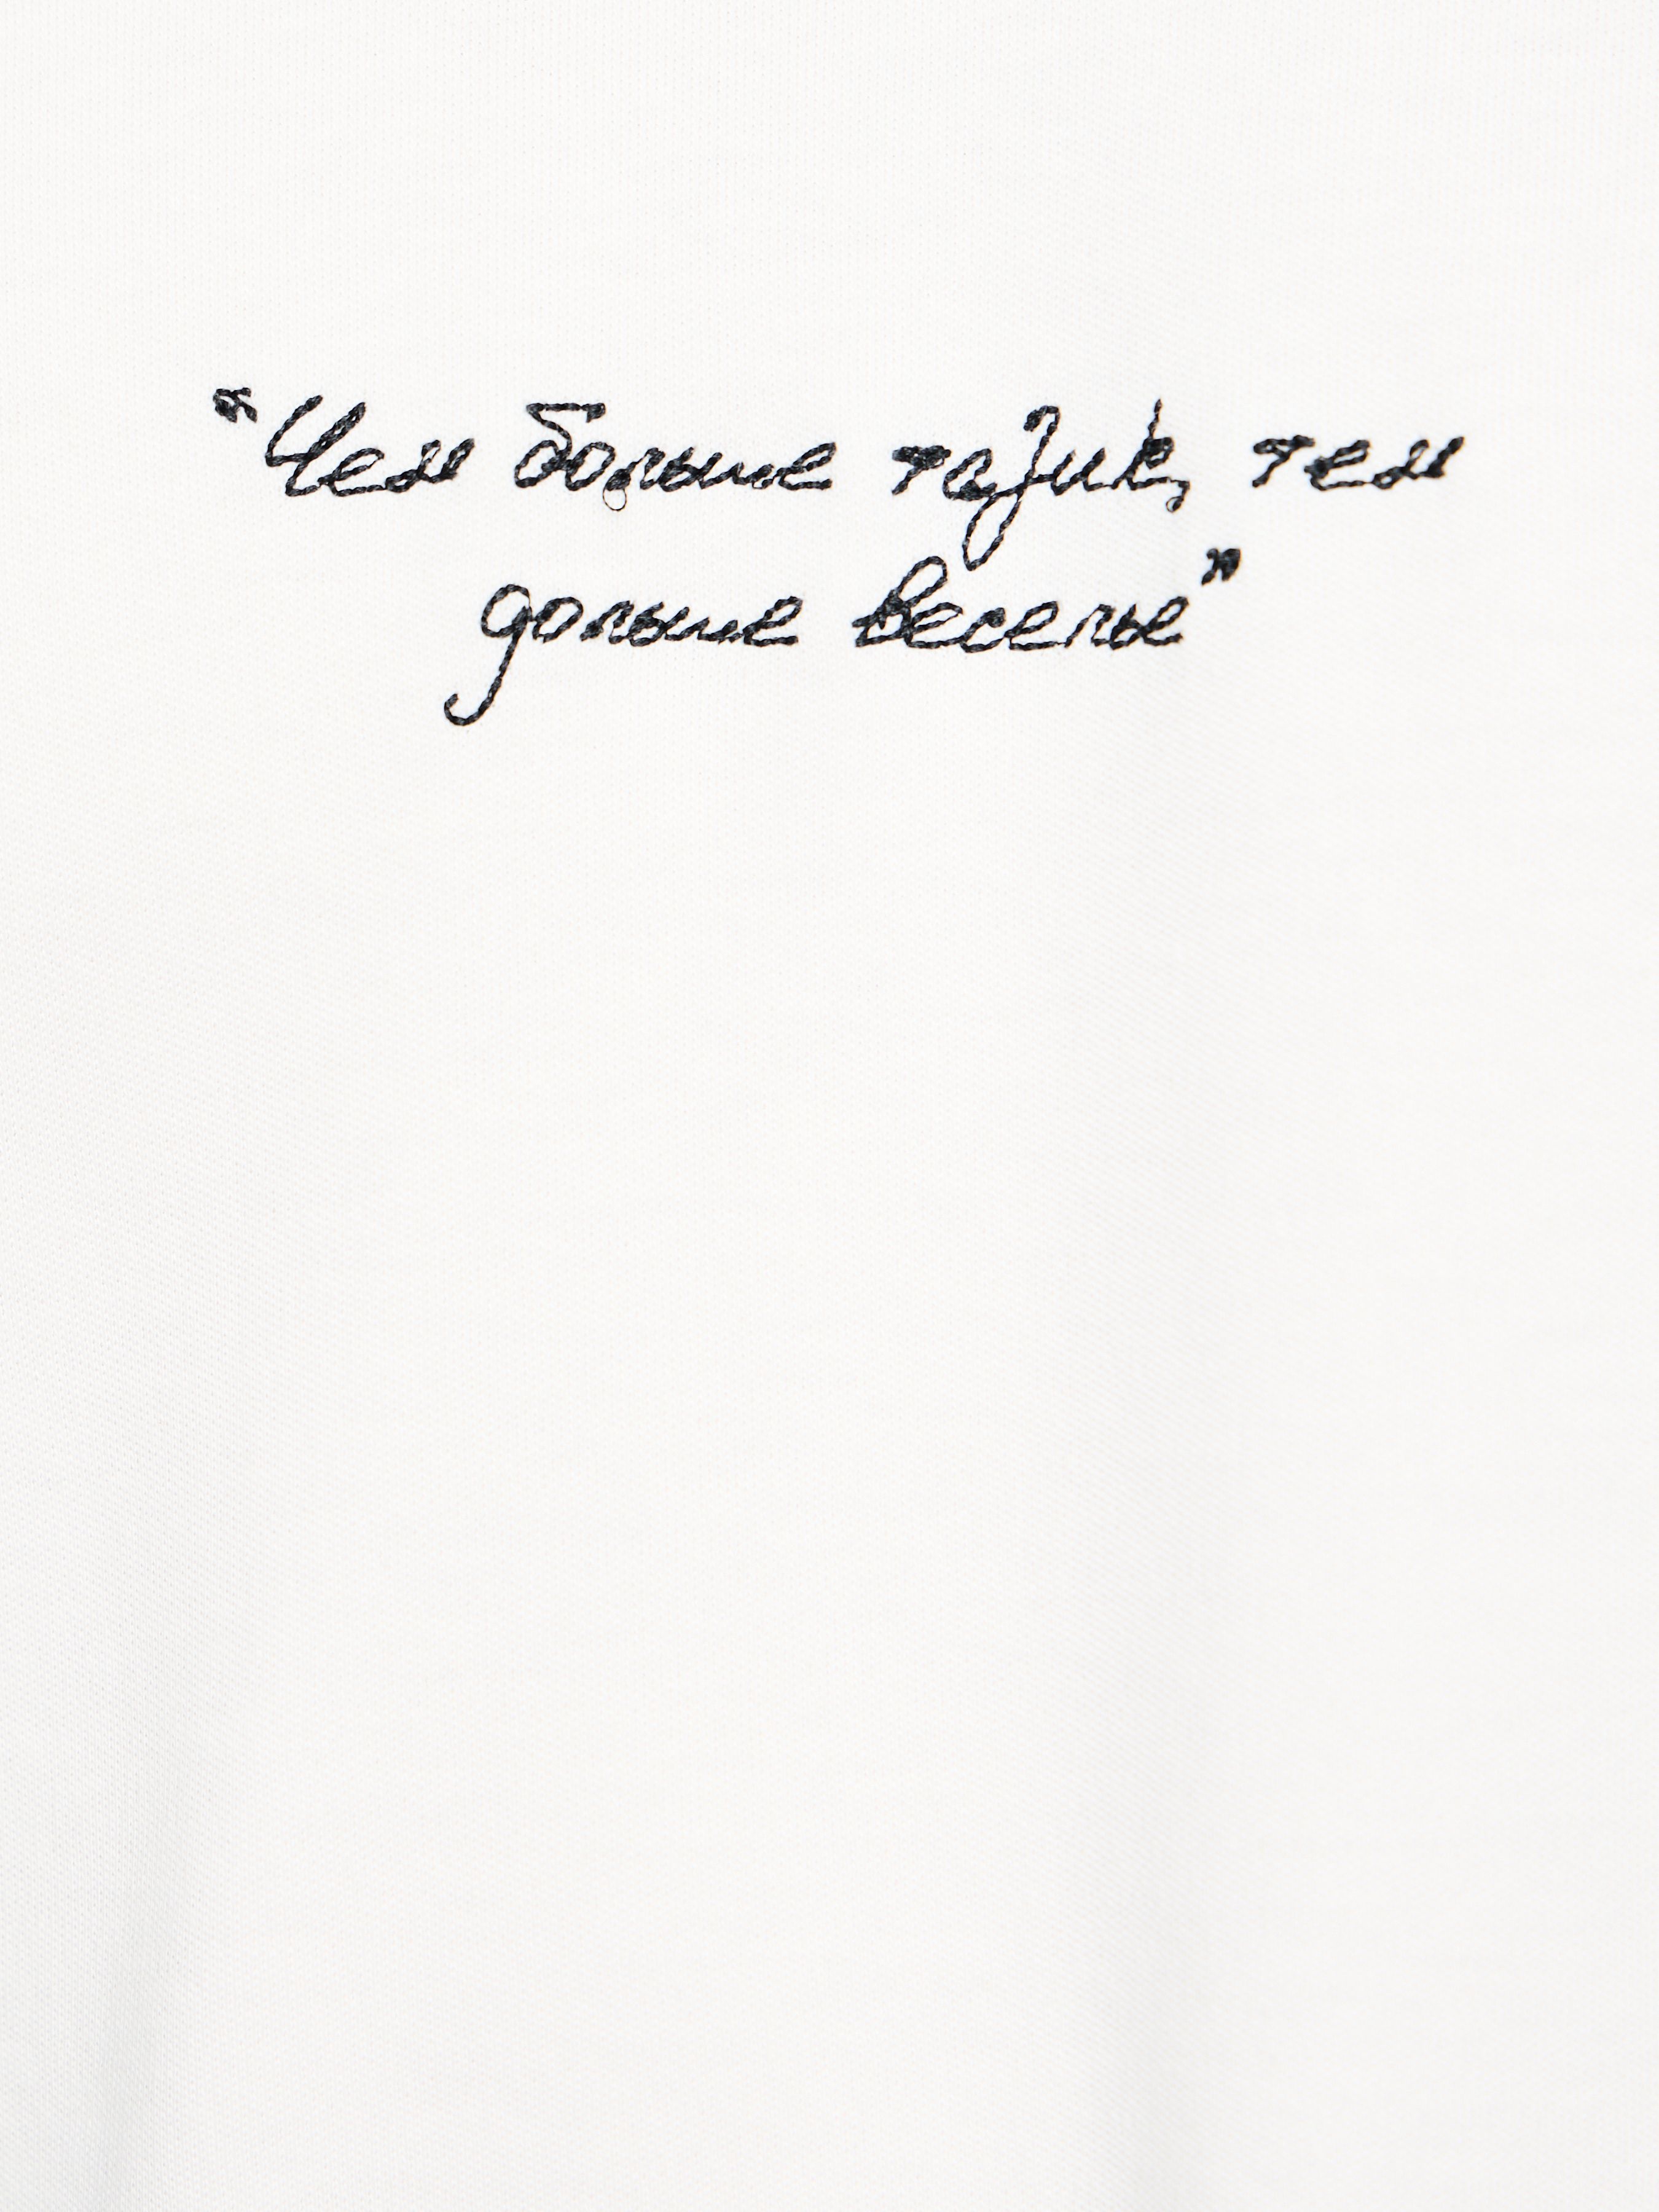 “Чем больше тазик, тем
дольше веселье”